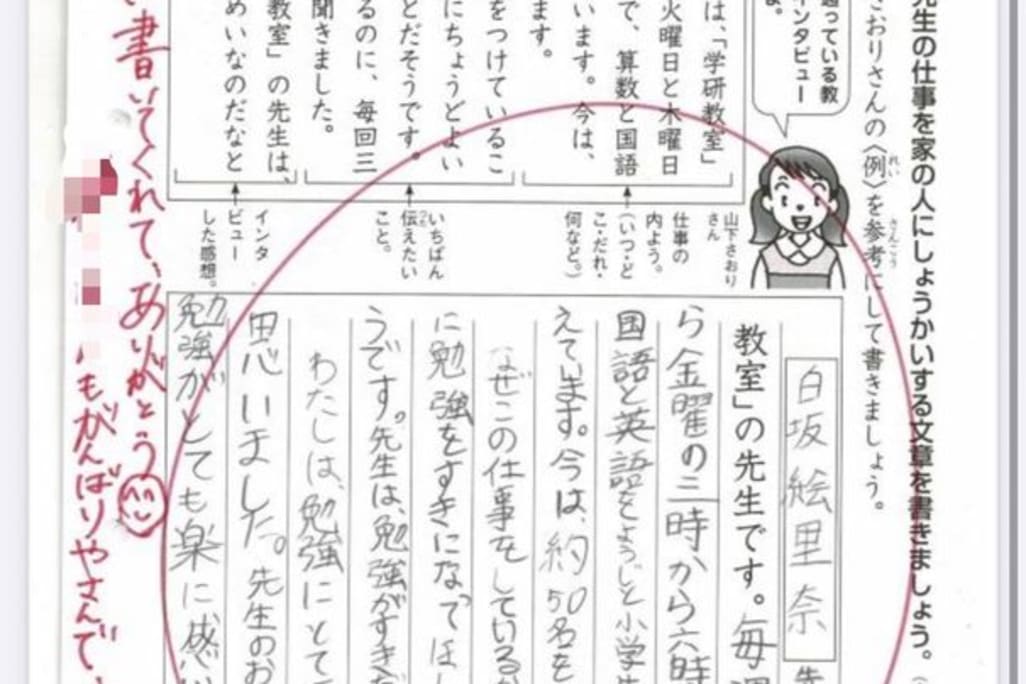 先生の仕事を家の人にしょうかいする文章を書きましょう。
さおりさんの〈例〉を参考にして書きましょう。
通っている教
インタビュー
よ。
山下さおり
さん
は、「学研教室」
火曜日と木曜日
で、算数と国語
います。今は、
ます。
をつけているこ
にちょうどよい
とだそうです。
るのに、毎回三
聞きました。
教室」の先生は、
めいなのだなと
仕事の
内よう。
(いつ・ど
こ・だれ・
何など。)
いちばん
伝えたい
こと。
インタ
ビュー
した感想。
白坂絵里奈
教室」の先生です。毎週
ら金曜の三時から六時
国語と英語をようじと小学生
えています。今は、約50名を
なぜこの仕事をしているか
に勉強をすきになってほし
うです。先生は、勉強がすきだ
わたしは、勉強にとて
思いました。先生のお
勉強がとても楽に感い
書いてくれて、ありがとう
もがんばりやさんで、